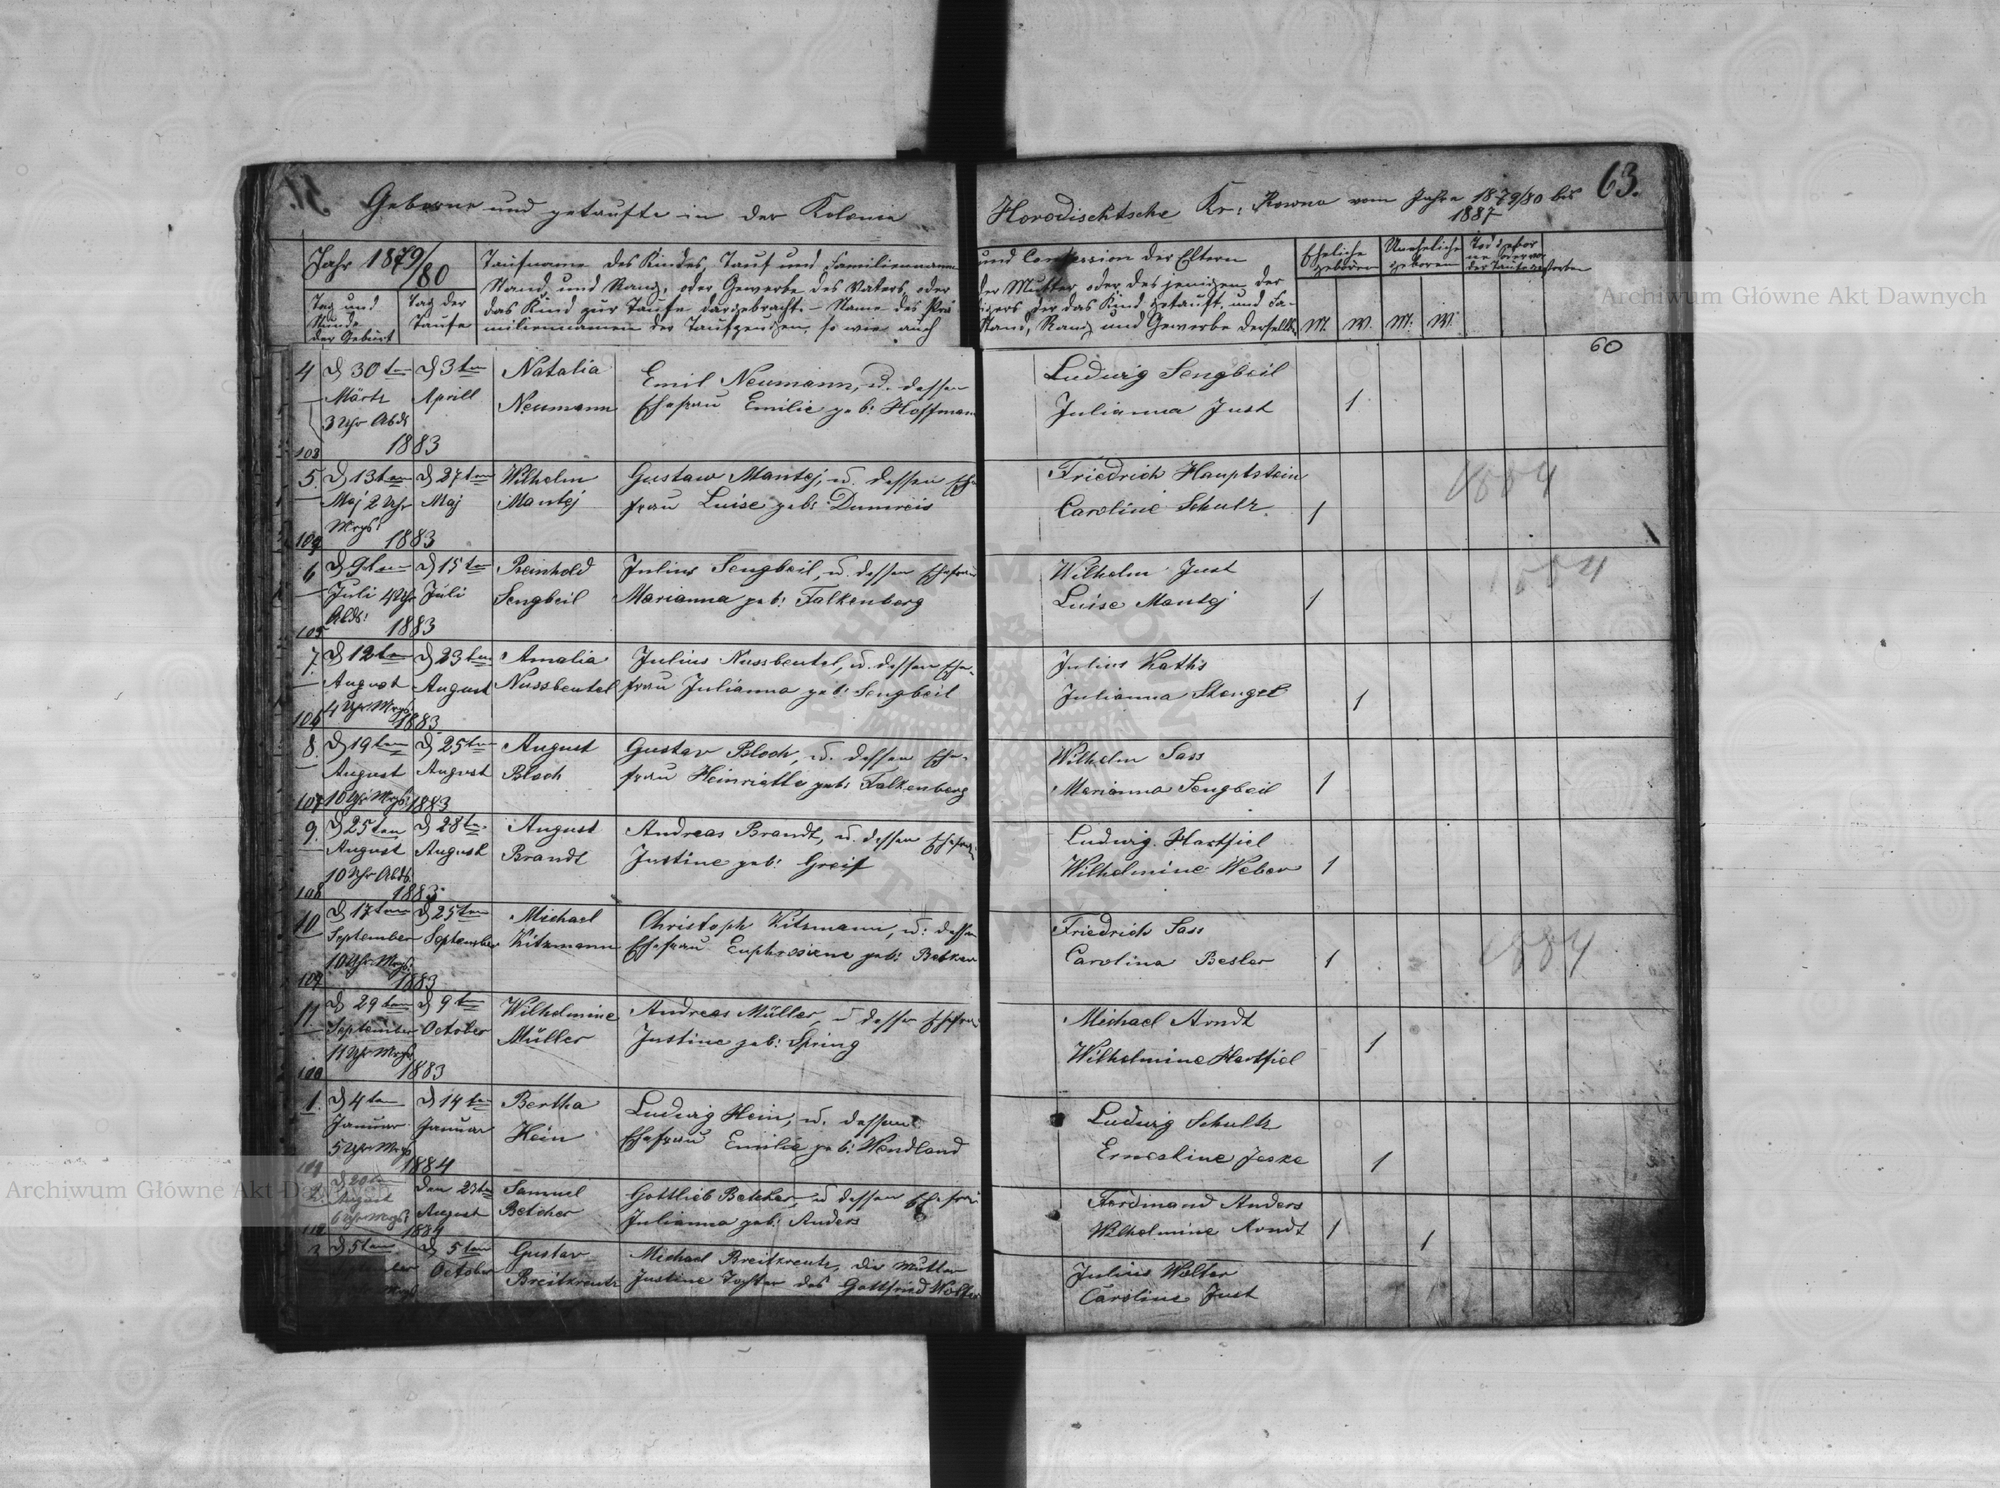 Geborne und getaufte in der Kolonie Horodischtsche Kr: Rowno vom Jahre 1879/80 bis 1887
63.
Jahr 1879/80
Tag und Stunde der Geburt
Tag der Taufe
Taufname des Kindes, Tauf und Familienname und Confession der Eltern
Stand und Rang, oder Gewerbe des Vaters, oder der Mutter oder desjenigen der
das Kind zur Taufe dargebracht - Name des Predigers der das Kind getauft, und Fa-
miliennamen der Taufzeugen, so wie auch Stand, Rang und Gewerbe derselb.
Eheliche geboren
Unehelich geboren
M. W. M. W.
60
4 d 30ten d 3ten Natalia Emil Neumann, u. dessen Ludwig Sengbeil
März Aprill Neumann Ehefrau Emilie geb: Hoffmann Julianna Just 1
3 Uhr Abds
1883
103
5. d 13ten d 27ten Wilhelm Gustaw Mantej, u. dessen Ehe- Friedrich Hauptstein 1884
Maj 2 Uhr Maj Mantej frau Luise geb: Dumreis Caroline Schulz 1
Mrgs: 1883
6 d 9ten d 15ten Reinhold Julius Sengbeil, u. dessen Ehefrau Wilhelm Just 1884
Juli 4 Uhr Juli Sengbeil Marianna geb: Falkenberg Luise Mantej 1
Abds: 1883
105
7. d 12ten d 23ten Amalia Julius Nussbeutel, u. dessen Ehe- Julius Raths
August August Nussbeutel frau Julianna geb: Sengbeil Julianna Stengel 1
4 Uhr Mrgs 1883
106
8. d 19ten d 25ten August Gustav Bloch, u. dessen Ehe- Wilhelm Sass
August August Bloch frau Heinriette geb: Falkenberg Marianna Sengbeil 1
10 Uhr Mrgs: 1883
107
9. d 25ten d 28ten August Andreas Brandt, u. dessen Ehefrau Ludwig Hartfiel
August August Brandt Justine geb: Greif Wilhelmine Weber 1
10 Uhr Abds 1883
108
10 d 17ten d 25ten Michael Christoph Kitzmann, u: dessen Friedrich Sass 1884
September September Kitzmann Ehefrau Euphrosiene geb: Carolina Besler 1
10 Uhr Mrgs 1883
109
11. d 29ten d 9ten Wilhelmine Andreas Müller, u dessen Ehefrau Michael Arndt
September October Müller Justine geb: Spring Wilhelmine Hartfiel 1
11 Uhr Mrgs 1883
1. d 4ten d 14ten Bertha Ludwig Hein, u. dessen Ludwig Schultz
Januar Januar Hein Ehefrau Emilie geb: Wendland Ernestine Jeske 1
5 Uhr Mrgs 1884
2. d 20ten den 23ten Samuel Gottlieb Betcher, u dessen Ehefrau Ferdinand Anders
August August Betcher Julianna geb: Anders Wilhelmine Arndt 1
6 Uhr Mrgs 1884
110
3 d 5ten d 5ten Gustav Michael Breitkreutz, die Mutter Julius Wolter 1
October Breitkreutz Justine Tochter des Gottfried Wolter Caroline Just
Archiwum Główne Akt Dawnych
Archiwum Główne Akt Dawnych